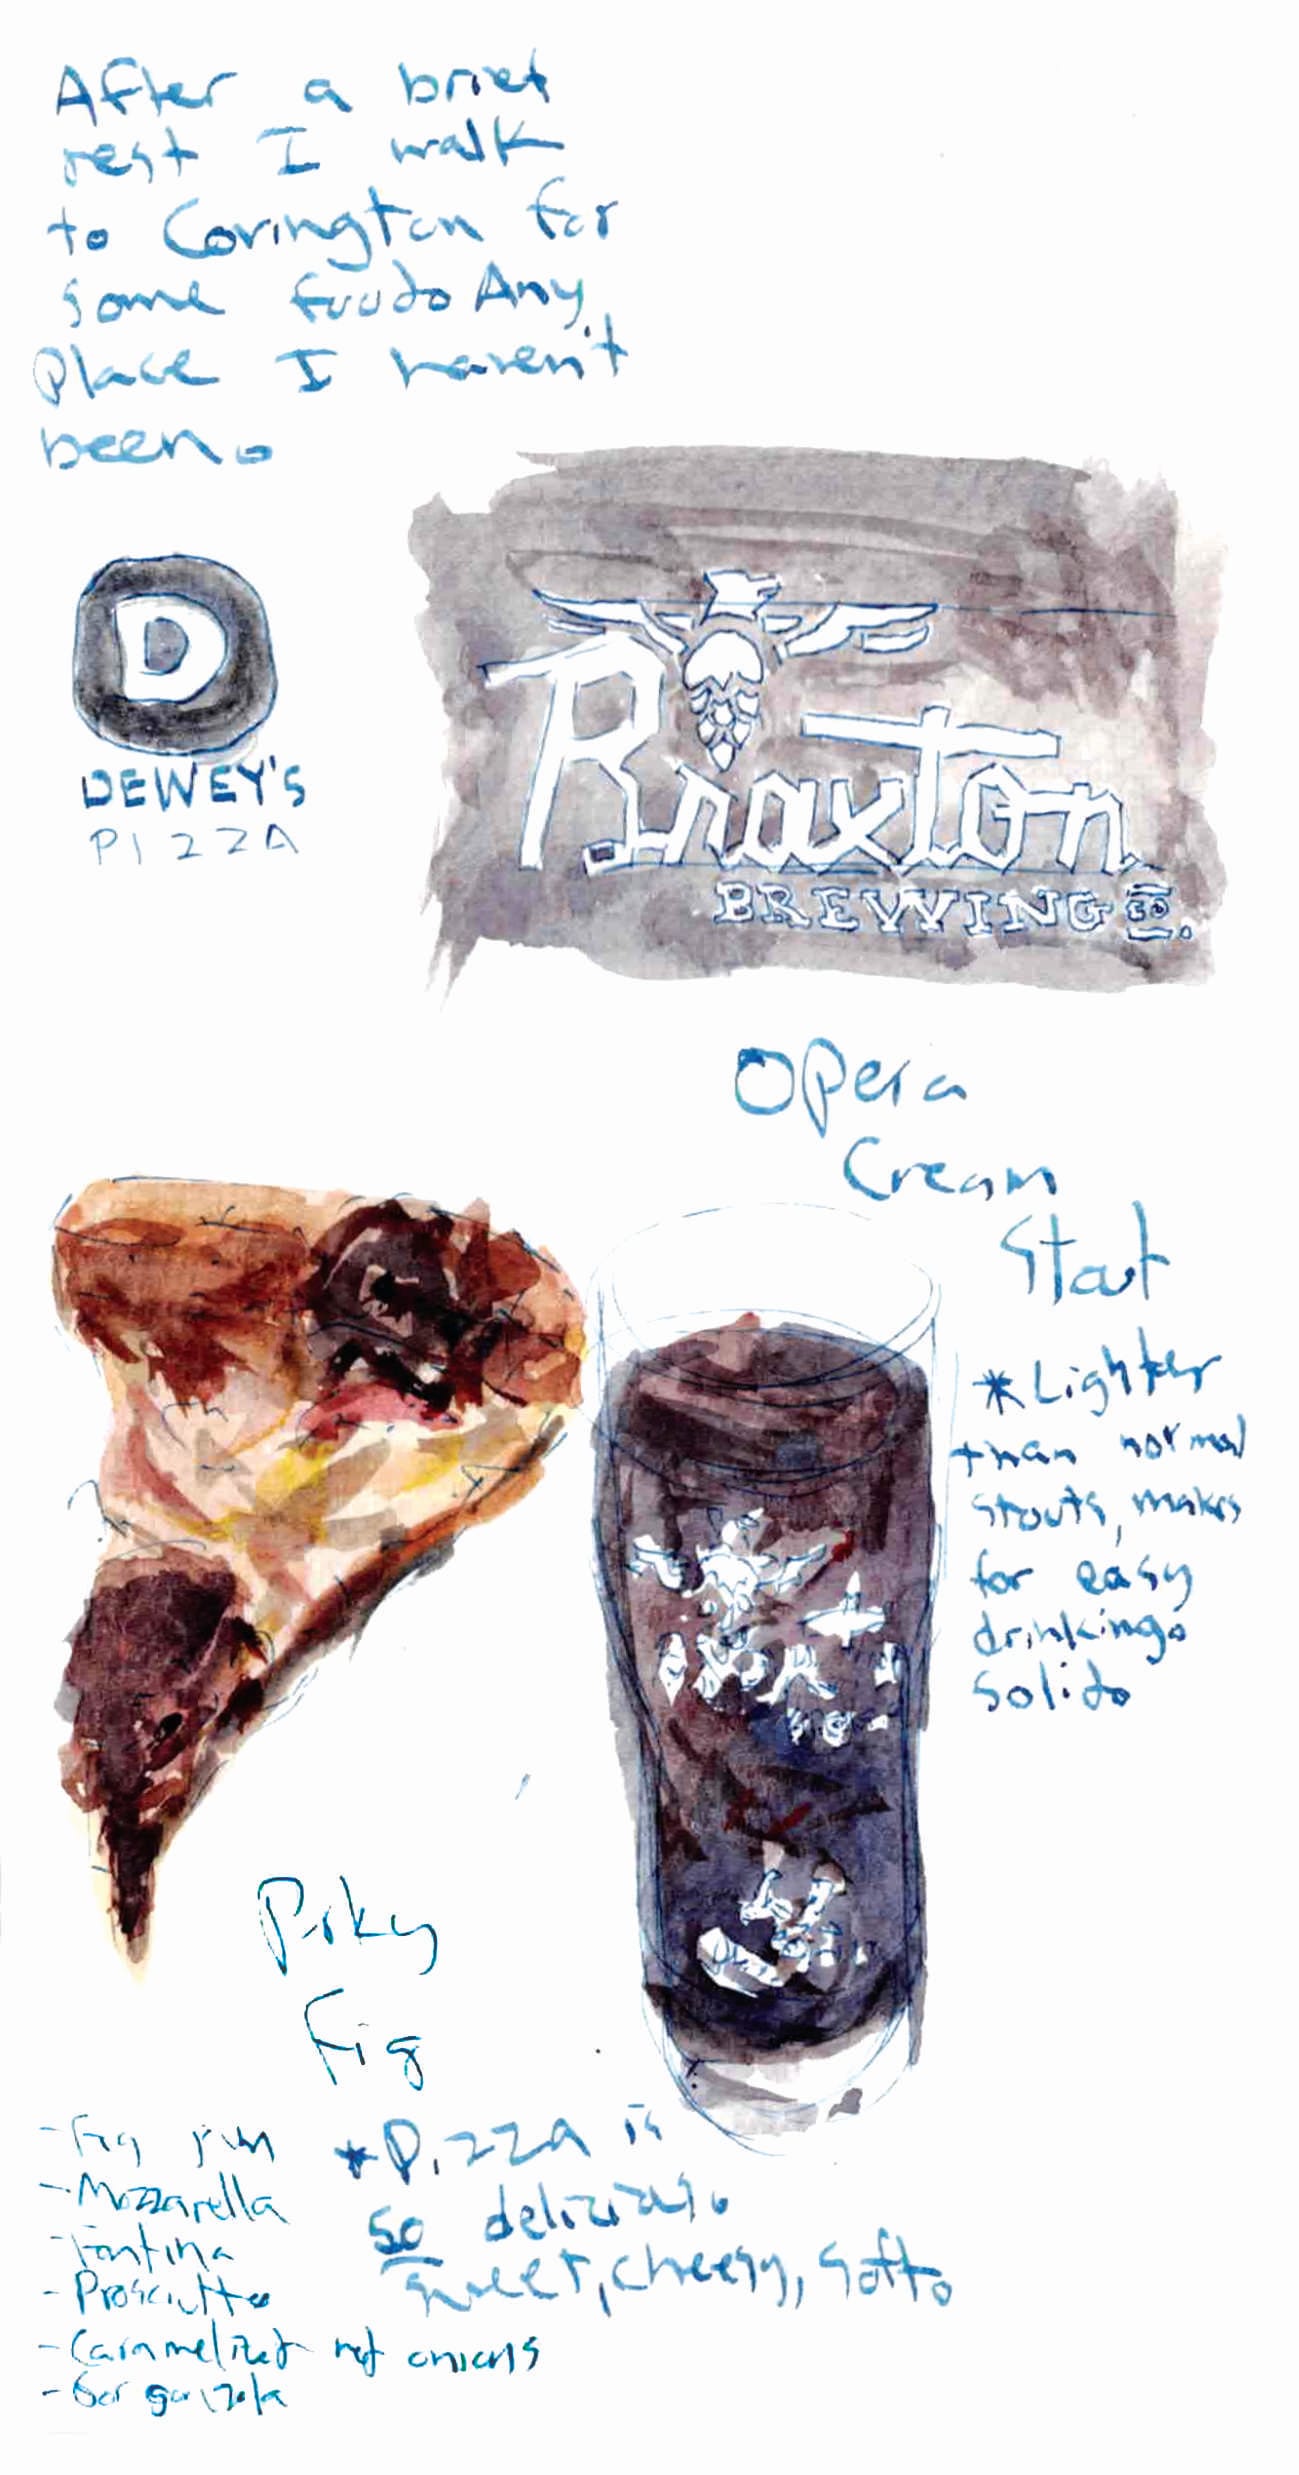 After a brief
rest I walk
to Covington for
some food. Any
Place I haven't
been.
D
DEWEY'S
PIZZA
Braxton
BREWING CO.
Opera
Cream
Stout
*Lighter
than normal
stouts, makes
for easy
drinking.
Solid.
Porky
Fig
- Fig jam
- Mozzarella
- Fontina
- Prosciutto
- Caramelized red onions
- Gorgonzola
*Pizza is
so delicious.
Sweet, cheesy, soft.